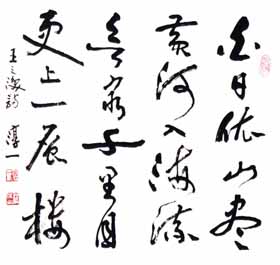 白日依山尽
黄河入海流
欲穷千里目
更上一层楼
王之涣诗 淳一